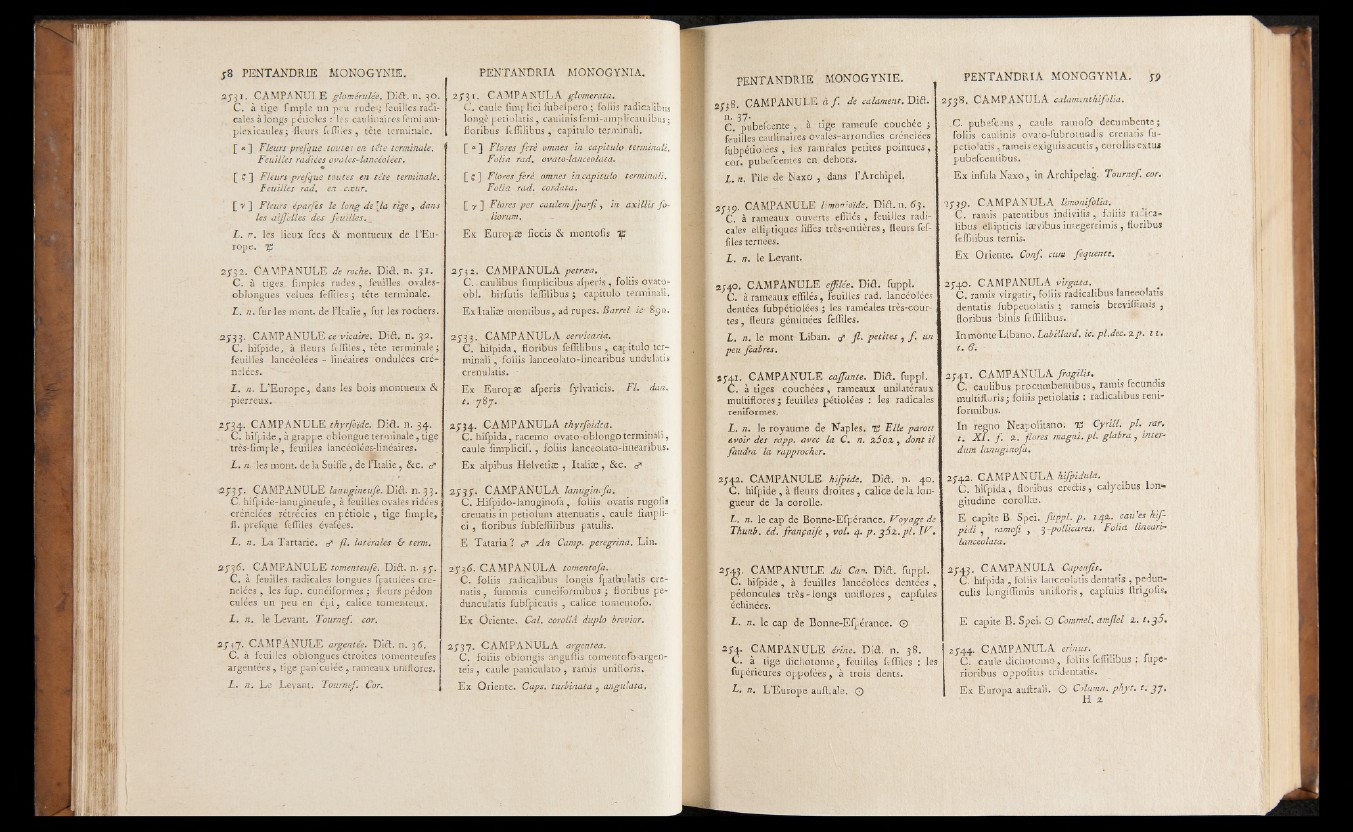 58 PENTANDRIE MONOGYNIE.
2531. CAMPANULE glomérulée. Diƈt. n. 30.
C. à tige ſimple un peu rude; feuilles radi-
cales à longs pétioles : les caulinaires ſemi am-
plexicaules; fleurs ſeſſiles, tête terminale.
[ α ] Fleurs preſque toutes en tête terminale.
Feuilles radicées ovales-lancéolées.
[ ϐ ] Fleurs preſque toutes en tête terminale.
Feuilles rad. en cœur.
[ γ ] Fleurs éparſes le long de la tige, dans
les aiſſelles des feuilles.
L. n. les lieux ſecs & montueux de l'Eu-
rope. ♃
2532. CAMPANULE de roche. Diƈt. n. 31.
C. à tiges ſimples rudes, feuilles ovales-
oblongues velues ſeſſiles; tête terminale.
L. n. ſur les mont. de l'Italie, ſur les rochers.
2533. CAMPANULE cervicaire. Diƈt. n. 32.
C. hiſpide, à fleurs ſeſſiles, tête terminale;
feuilles lancéolées - linéaires ondulées cré-
nelées.
L. n. L'Europe, dans les bois montueux &
pierreux.
2534. CAMPANULE thyrſoïde. Diƈt. n. 34.
C. hiſpide, à grappe oblongue terminale, tige
très-ſimple, feuilles lancéolées-linéaires.
L. n. les mont. de la Suiſſe, de l'Italie, &c. ♂
2535. CAMPANULE lanugineuſe. Diƈt. n. 33.
C. hiſpide-lanugineuſe, à feuilles ovales ridées
crénelées rétrécies en pétiole, tige ſimple,
fl. preſque ſeſſiles évaſées.
L. n. La Tartarie. ♂ fl. latérales & term.
2536. CAMPANULE tomenteuſe. Diƈt. n. 35.
C. à feuilles radicales longues ſpatulées cré-
nelées, les ſup. cunéiformes; fleurs pédon
culées un peu en épi, calice tomenteux.
L. n. le Levant. Tournef. cor.
2537. CAMPANULE argentée. Diƈt. n. 36.
C. à feuilles oblongues étroites tomenteuſes
argentées, tige paniculée, rameaux uniflores.
L. n. Le Levant. Tournef. Cor.
PENTANDRIA MONOGYNIA.
2531. CAMPANULA glomerata.
C. caule ſimplici ſubaſpero; foliis radicalibus
longè petiolatis, caulinis ſemi-amplicaulibus;
floribus ſeſſilibus, capitulo terminali.
[ α ] Flores ferè omnes in capitulo terminali.
Folia rad. ovato-lanceolata.
[ ϐ ] Flores ferè omnes in capitulo terminali.
Folia rad. cordata.
[ γ ] Flores per caulem ſparſi, in axillis fo-
liorum.
Ex Europæ ſiccis & montoſis ♃
2532. CAMPANULA petræa.
C. caulibus ſimplicibus aſperis, foliis ovato-
obl. hirſutis ſeſſilibus; capitulo terminali.
Ex Italiæ montibus, ad rupes. Barrel ic 890.
2533. CAMPANULA cervicaria.
C. hiſpida, floribus ſeſſilibus, capitulo ter-
minali, foliis lanceolato-linearibus undulatis
crenulatis.
Ex Europæ aſperis ſylvaticis. Fl. dan.
t. 787.
2534. CAMPANULA thyrſoidea.
C. hiſpida, racemo ovato-oblongo terminali,
caule ſimpliciſ., foliis lanceolato-linearibus.
Ex alpibus Helvetiæ, Italiæ, &c. ♂
2535. CAMPANULA lanuginoſa.
C. Hiſpido-lanuginoſa, foliis ovatis rugoſis
crenatis in petiolum attenuatis, caule ſimpli-
ci, floribus ſubſeſſilibus patulis.
E Tataria? ♂ An Camp. peregrina. Lin.
2536. CAMPANULA tomentoſa.
C. foliis radicalibus longis ſpathulatis cre-
natis, ſummis cuneiformibus; floribus pe-
dunculatis ſubſpicatis, calice tomentoſo.
Ex Oriente. Cal. corollâ duplo brevior.
2537. CAMPANULA argentea.
C. foliis oblongis anguſtis tomentoſo-argen-
teis, caule paniculato, ramis unifloris.
Ex Oriente. Caps. turbinata, angulata.
PENTANDRIE MONOGYNIE.
2538. CAMPANULE à f. de calament. Diƈt.
n. 37.
C. pubeſcente, à tige rameuſe couchée;
feuilles caulinaires ovales-arrondies crénelées
ſubpétiolées, les raméales petites pointues,
cor. pubeſcentes en dehors.
L. n. l'île de Naxo, dans l'Archipel.
2539. CAMPANULE limonioïde. Diƈt. n. 63.
C. à rameaux ouverts effilés, feuilles radi-
cales elliptiques liſſes très-entières, fleurs ſeſ-
ſiles ternées.
L. n. le Levant.
2540. CAMPANULE effilée. Diƈt. ſuppl.
C. à rameaux effilés, feuilles rad. lancéolées
dentées ſubpétiolées; les raméales très-cour-
tes, fleurs géminées ſeſſiles.
L. n. le mont Liban. ♂ fl. petites, f. un
peu ſcabres.
2541. CAMPANULE caſſante. Diƈt. ſuppl.
C. à tiges couchées, rameaux unilatéraux
multiflores; feuilles pétiolées : les radicales
réniformes.
L. n. le royaume de Naples. ♃ Elle paroit
avoir des rapp. avec la C. n. 2502, dont il
faudra la rapprocher.
2542. CAMPANULE hiſpide. Diƈt. n. 40.
C. hiſpide, à fleurs droites, calice de la lon-
gueur de la corolle.
L. n. le cap de Bonne-Eſpérance. Voyage de
Thunb. éd. françaiſe, vol. 4. p. 362. pl. IV.
2543. CAMPANULE du Cap. Diƈt. ſuppl.
C. hiſpide, à feuilles lancéolées dentées,
pédoncules très-longs uniflores, capſules
échinées.
L. n. le cap de Bonne-Eſpérance. ☉
254. CAMPANULE érine. Diƈt. n. 38.
C. à tige dichotome, feuilles ſeſſiles : les
ſupérieures oppoſées, à trois dents.
L. n. L'Europe auſtrale. ☉
PENTANDRIA MONOGYNIA. 59
2538. CAMPANULA calaminthifolia.
C. pubeſcens, caule ramoſo decumbente;
foliis caulinis ovato-ſubrotundis crenatis ſu-
petiolatis, rameis exiguis acutis, corollis extus
pubeſcentibus.
Ex inſula Naxo, in Archipelag. Tournef. cor.
2539. CAMPANULA limonifolia.
C. ramis patentibus indiviſis, foliis radica-
libus ellipticis lævibus integerrimis, floribus
ſeſſilibus ternis.
Ex Oriente. Conf. cum ſequente.
2540. CAMPANULA virgata.
C. ramis virgatis, foliis radicalibus lanceolatis
dentatis ſubpetiolatis; rameis breviſſimis,
floribus binis ſeſſilibus.
In monte Libano. Labillard. ic. pl. dec. 2 p. 11.
t. 6.
2541. CAMPANULA fragilis.
C. caulibus procumbentibus, ramis ſecundis
multifloris; foliis petiolatis : radicalibus reni-
formibus.
In regno Neapolitano. ♃ Cyrill. pl. rar.
t. XI. f. 2. flores magni. pl. glabra, inter-
dum lanuginoſa.
2542. CAMPANULA hiſpidula.
C. hiſpida, floribus erectis, calycibus lon-
gitudine corollæ.
E capite B Spei. ſuppl. p. 142. caules hiſ-
pidi, ramoſi, 3-pollicares. Folia lineari-
lanceolata.
2543. CAMPANULA Capenſis.
C. hiſpida, foliis lanceolatis dentatis, pedun-
culis longiſſimis unifloris, capſulis ſtrigoſis.
E capite B. Spei. ☉ Commel. amſtel 2. t. 36.
2544. CAMPANULA erinus.
C. caule dichotomo, foliis ſeſſilibus : ſupe-
rioribus oppoſitis tridentatis.
Ex Europa auſtrali. ☉ Column. phyt. t. 37.
H 2